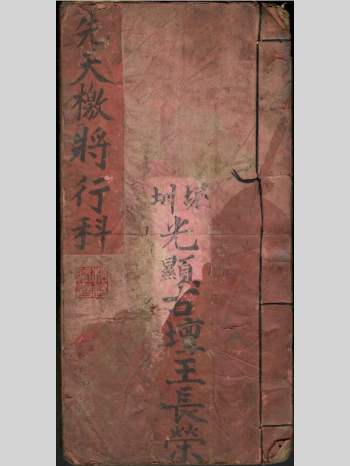 先天檄將行科
圳
光顯
壇王長榮